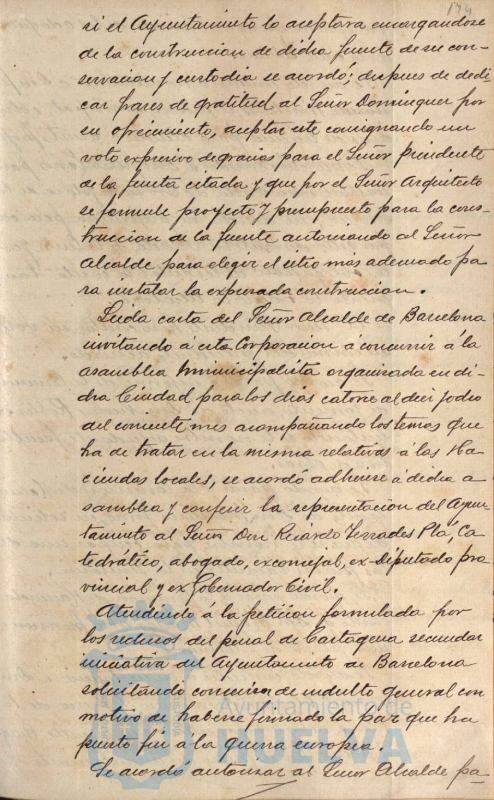 174
si el Ayuntamiento lo aceptara encargandose
de la construccion de dicha fuente de su con-
servacion y custodia se acordó, despues de dedi-
car frases de gratitud al Señor Dominguez por
su ofrecimiento, aceptar este consignando un
voto expresivo de gracias para el Señor Presidente
de la Junta citada y que por el Señor Arquitecto
se formule proyecto y presupuesto para la cons-
truccion de la fuente autorizando al Señor
Alcalde para elegir el sitio más adecuado pa
ra instalar la expresada construccion.
Leida carta del Señor Alcalde de Barcelona
invitando á esta Corporacion á concurrir á la
asamblea Municipalista organizada en di-
cha Ciudad para los dias catorce al dieciocho
del corriente mes acompañando los temas que
ha de tratar en la misma relativas á las Ha
ciendas locales, se acordó adherirse á dicha a
samblea y conferir la representacion del Ayun
tamiento al Señor Don Ricardo Terrades Plá, Ca
tedrático, abogado, exconcejal, ex-Diputado pro
vincial y ex Gobernador Civil.
Atendiendo á la peticion formulada por
los reclusos del penal de Cartagena secundar
iniciativa del Ayuntamiento de Barcelona
solicitando concesion de indulto general con
motivo de haberse firmado la paz que ha
puesto fin á la guerra europea.
Se acordó autorizar al Señor Alcalde pa
Ayuntamiento de
HUELVA